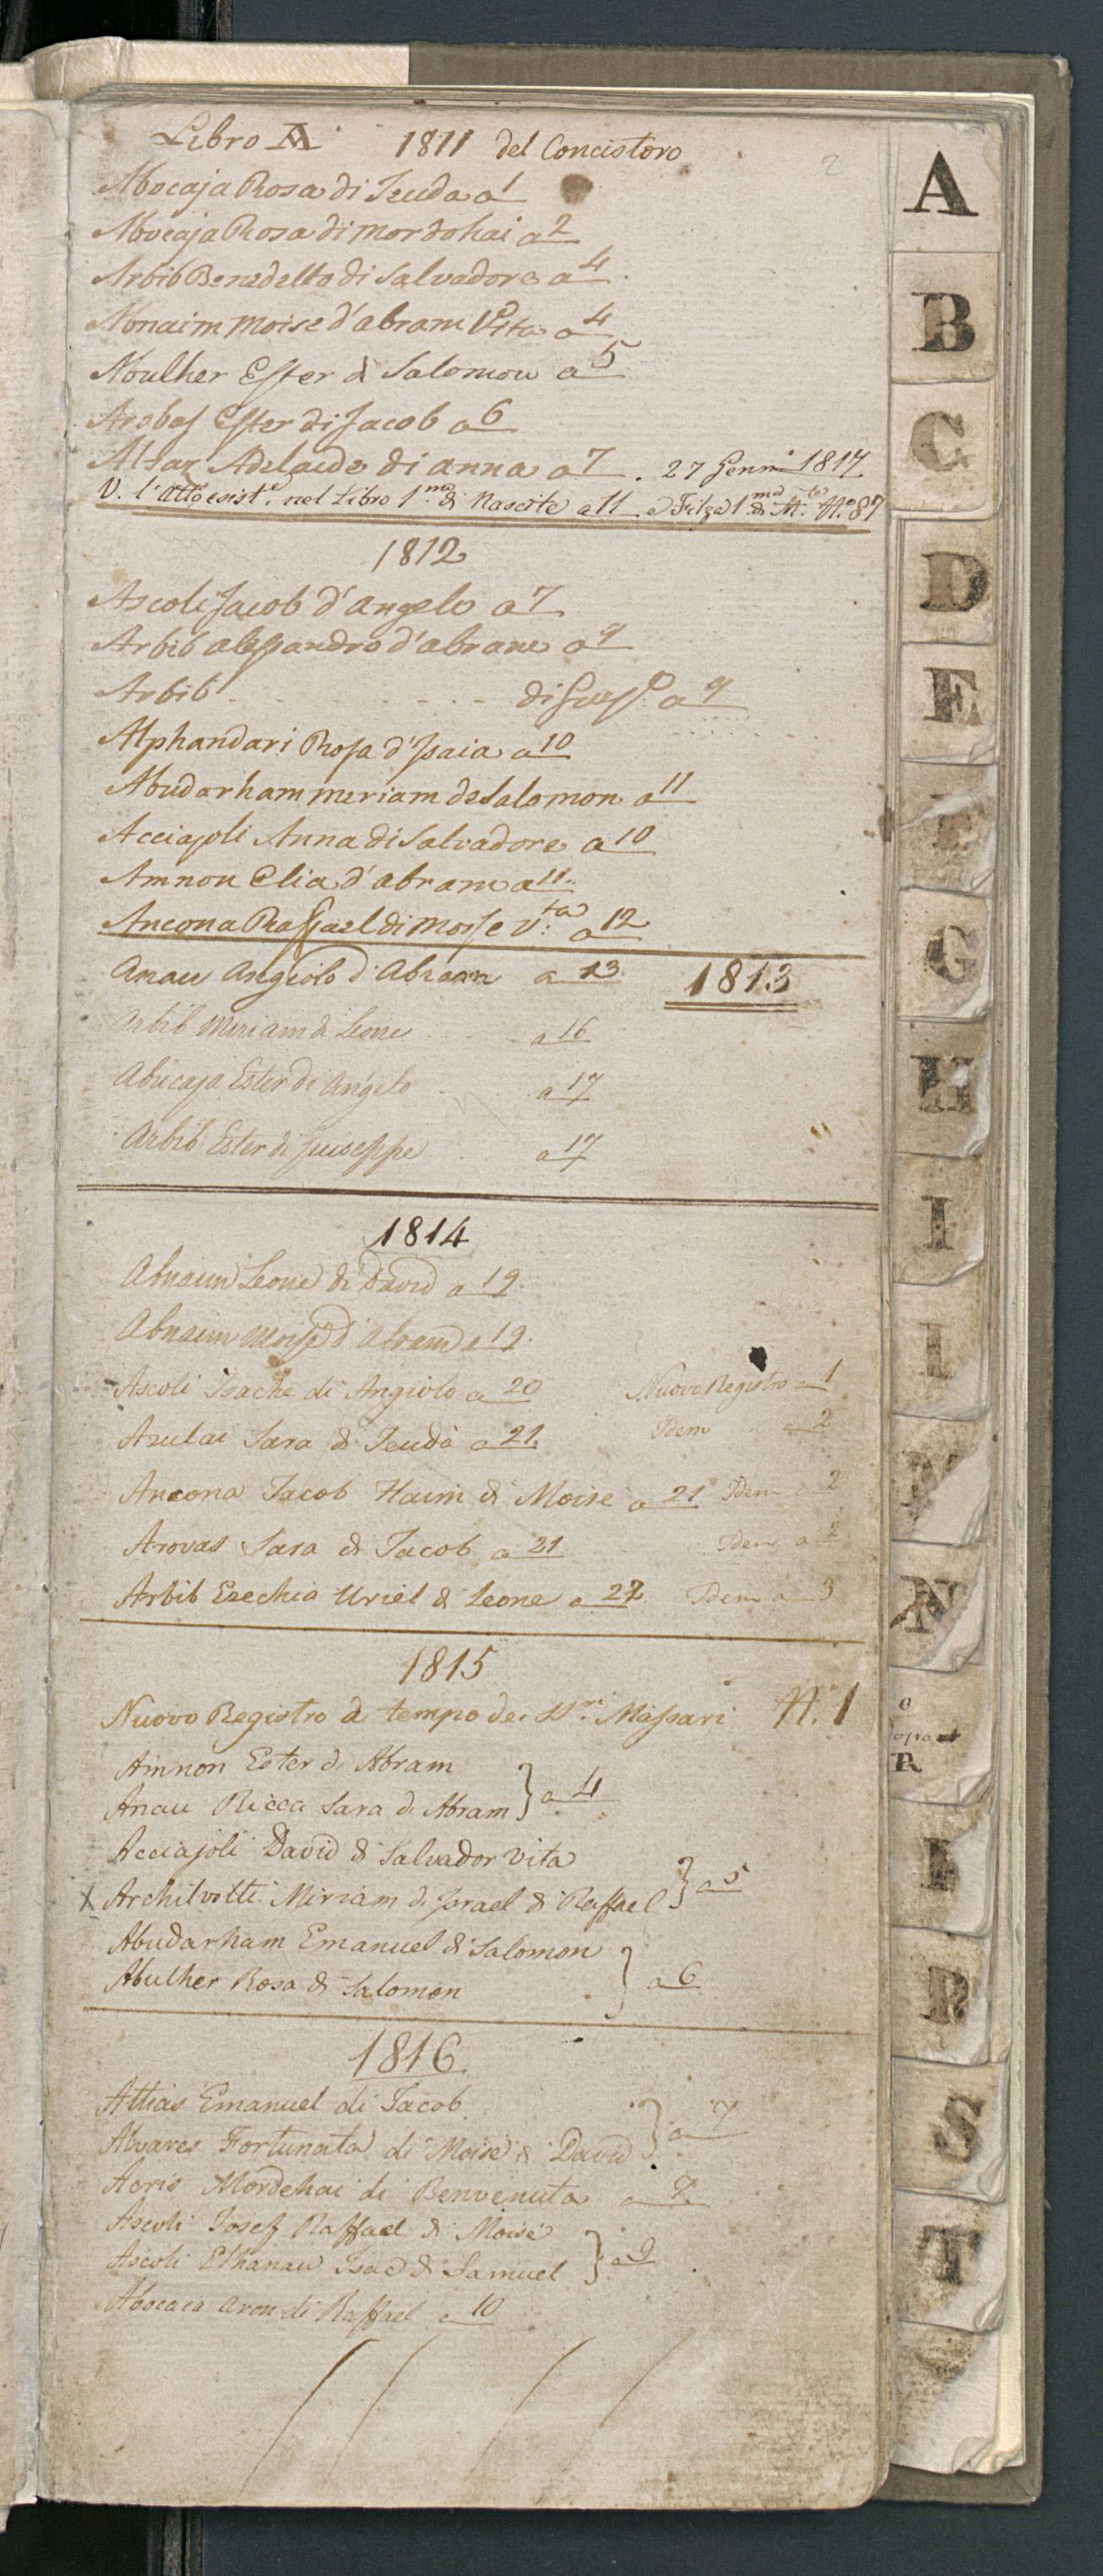 Libro A 1811 del Concistoro
2
Abocaja Rosa di Jeuda a 1
Abocaja Rosa di Mordohai a 2
Arbib Benedetto di Salvadore a 4
Abnaim Moise d'abram Vita a 4
Aboulher Ester di Salomon a 5
Arobas Ester di Jacob a 6
Altaz Adelaide di anna a 7. 27 Genn. 1817
V. l'atto esist.e nel Libro 1.mo di Nascite a 11 e Filza 1.ma di M.to N.o 87
1812
Ascoli Jacob d'angelo a 7
Arbib alessandro d'abram a 9
Arbib di Gius.e a 9
Alphandari Rosa d'Isaia a 10
Abudarham meriam de Salomon a 11
Acciajoli Anna di Salvadore a 10
Amnon Elia d'abram a 11
Ancona Raffael di Mosse V.ta a 12
Anau Angiolo d'Abram a 13 1813
Arbib Miriam di Leone a 16
Abucaja Ester di Angelo a 17
Arbib Ester di Giuseppe a 17
1814
Abnaim Leone di David a 19
Abnaim Moise d'Abram a 19
Ascoli Isache di Angiolo a 20 Nuovo Registro a 1
Azulai Sara di Jeuda a 21 Idem a 2
Ancona Jacob Haim di Moise a 21 Idem a 2
Arovas Sara di Jacob a 21 Idem a 2
Arbib Ezechia Uriel di Leone a 22 Idem a 3
1815
Nuovo Registro a tempo dei SS.ri Massari N. 1
Amnon Ester di Abram
Anau Ricca Sara di Abram } a 4
Acciajoli David di Salvador Vita
X Archilvolti Miriam di Israel di Raffael } a 5
Abudarham Emanuel di Salomon
Abulher Rosa di Salomon } a 6
1816
Attias Emanuel di Jacob
Alvares Fortunata di Moise di David } a 7
Acris Mordehai di Benvenuta a 7
Ascoli Josef Raffael di Moise
Ascoli Elhanau Isac di Samuel } a 9
Abocaia Aron di Raffael a 10
A
B
C
D
E
F
G
H
I
I
N
O
R
R
S
T